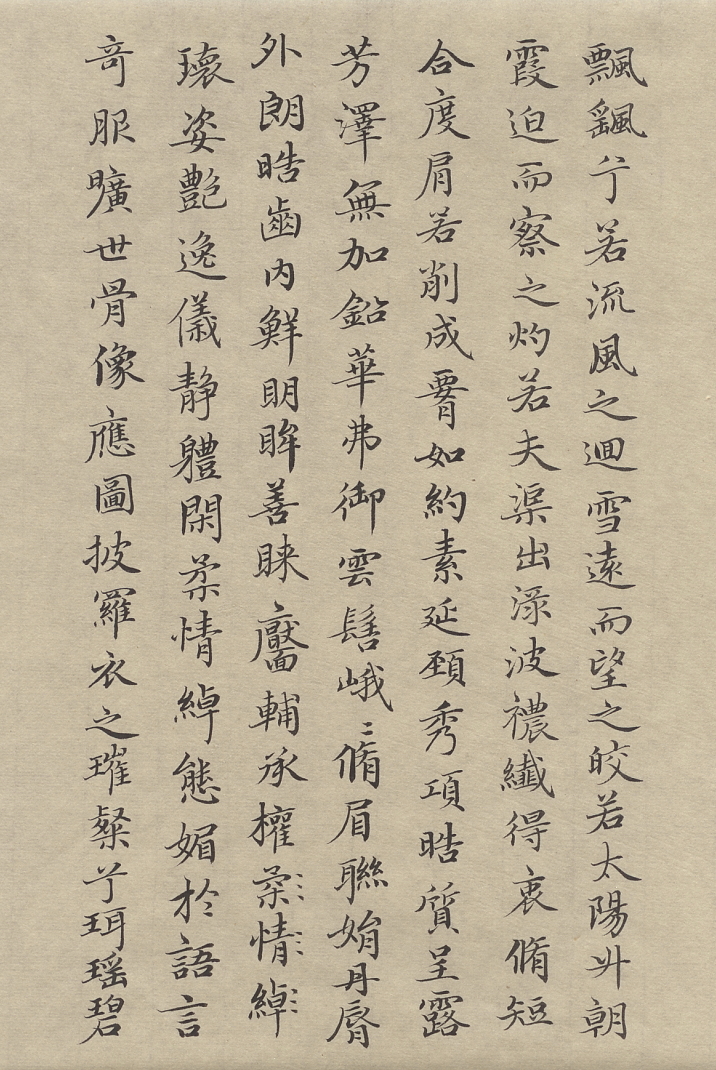 飄飖兮若流風之迴雪遠而望之皎若太陽升朝
霞迫而察之灼若夫渠出淥波襛纖得衷脩短
合度肩若削成䙅如約素延頸秀項晧質呈露
芳澤無加鉛華弗御雲髻峨〻脩眉聯娟丹脣
外朗晧齒內鮮明眸善睞靨輔承權柔情綽
瓌姿艷逸儀靜體閑柔情綽態媚於語言
奇服曠世骨像應圖披羅衣之璀粲兮珥瑤碧